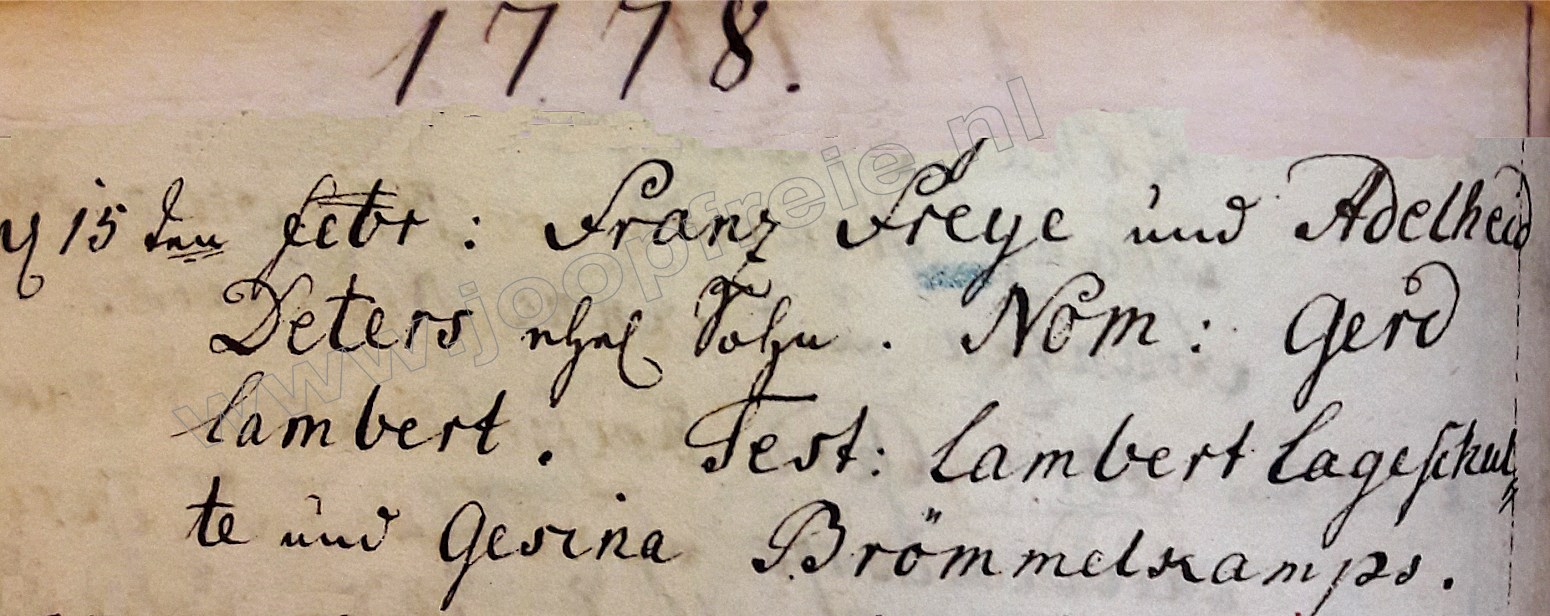 1778.
15 ten Febr: Franz Freye und Adelheid
Deters ehel Sohn. Nom: Gerd
Lambert. Test: Lambert Lageschul-
te und Gesina Brömmelkamps.
www.joopfreie.nl